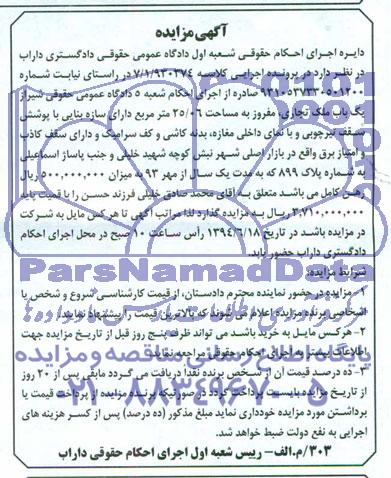 آگهی مزایده
دایره اجرای احکام حقوقی شعبه اول دادگاه عمومی حقوقی دادگستری داراب
در نظر دارد در پرونده اجرایی کلاسه ۷/۱/۹۳۰۲۷۴ در راستای نیابت شماره
صادره از اجرای احکام شعبه ۵ دادگاه عمومی حقوقی شیراز
یک باب ملک تجاری، مفروز به مساحت ۲۵/۰۶ متر مربع دارای سازه بنایی با پوشش
سقف تیرچوبی و با نمای داخلی مغازه، بدنه کاشی و کف سرامیک و دارای سقف کاذب
و امتیاز برق واقع در بازار اصلی شهر نبش کوچه شهید خلیلی و جنب پاساژ اسماعیلی
به شماره پلاک ۸۹۹ که به مدت یک سال از مهر ۹۳ به میزان ۵۰۰,۰۰۰,۰۰۰ ریال
رهن کامل می باشد متعلق به آقای محمد صادق خلیلی فرزند حسن را با قیمت پایه
۲,۷۱۰,۰۰۰,۰۰۰ ریال به مزایده گذارد لذا مراتب آگهی تا هر کس مایل به شرکت
در مزایده باشد در تاریخ ۱۳۹۴/۶/۱۸ رأس ساعت ۱۰ صبح در محل اجرای احکام
دادگستری داراب حضور یابد.
شرایط مزایده:
۱- مزایده در حضور نماینده محترم دادستان، از قیمت کارشناسی شروع و شخص یا
اشخاصی برنده مزایده اعلام می شوند که بالاترین قیمت را پیشنهاد نمایند.
۲- هرکس مایل به خرید باشد می تواند ظرف پنج روز قبل از تاریخ مزایده جهت
اطلاعات بیشتر به اجرای احکام حقوقی مراجعه نماید.
۳- ده درصد قیمت از شخص برنده نقدا دریافت می گردد مابقی پس از ۲۰ روز
از تاریخ مزایده بایست پرداخت گردد در صورتیکه برنده مزایده از پرداخت قیمت یا
برداشتن مورد مزایده خودداری نماید مبلغ مذکور (ده درصد) پس از کسر هزینه های
اجرایی به نفع دولت ضبط خواهد شد.
۳۰۳/م.الف- رییس شعبه اول اجرای احکام حقوقی داراب
ParsNamadData
پایگاه اطلاع رسانی مناقصه و مزایده
۰۲۱-۸۸۳۴۹۶۷۰-۵